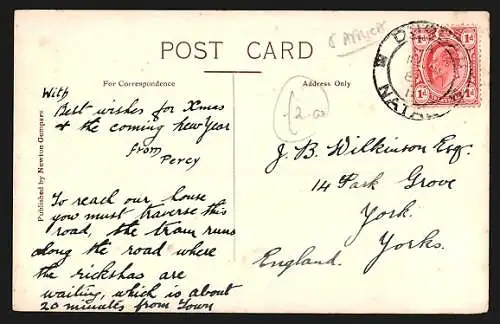 S Africa
POST CARD
For Correspondence
Address Only
1d 1d
NATAL
2-00
With
Best wishes for Xmas
& the coming New Year
from
Percy
To reach our house
you must traverse this
road, the tram runs
along the road where
the rickshas are
waiting, which is about
20 minutes from Town
J. B. Wilkinson Esq.
14 Park Grove
York.
Yorks.
England.
Published by Newton Gompers